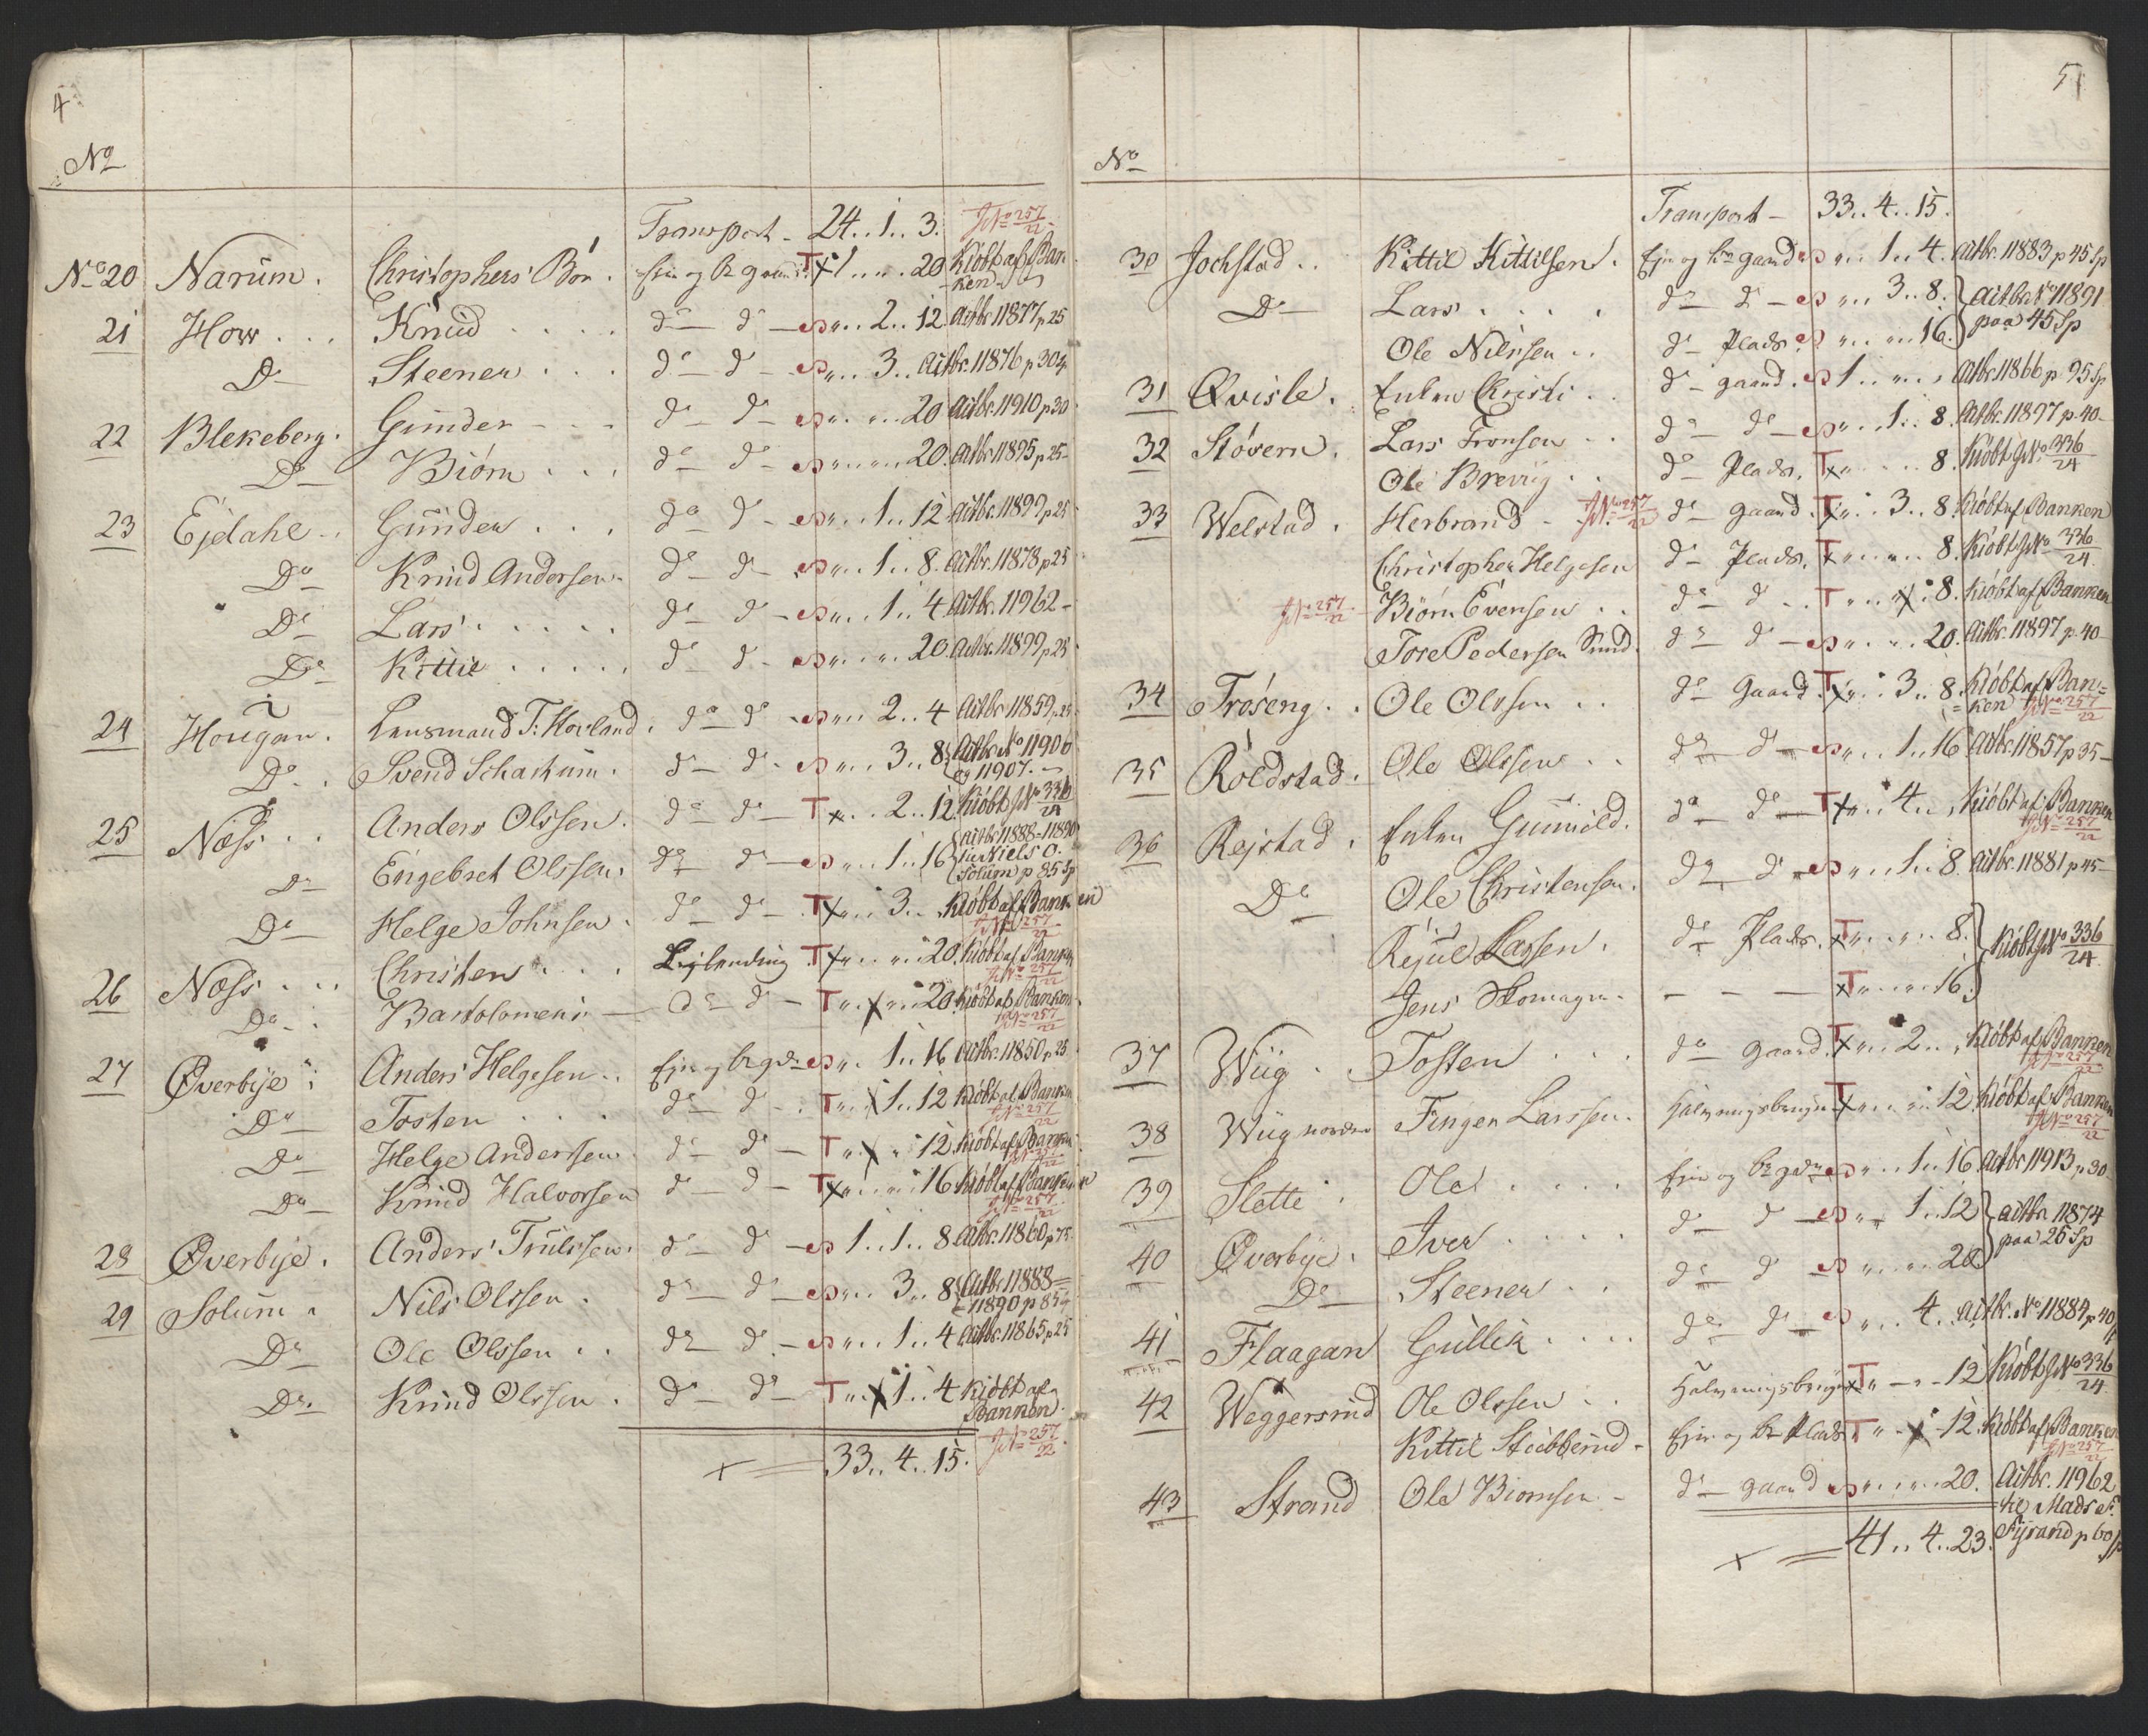 4
No
Transport - 24.. 1.. 3. JNo 257/22
No 20 Narum. Christophers Bón. Ejer og br gaard. T x 1 .. .. 20 Kióbt af Ban-
ken
21 How ... Knud .... do do - " .. 2 .. 12. Aitbr. 11877 p 25
Do Steener ... do do - " .. 3 .. Aitbr. 11876 p 30 Sp
22 Blekeberg. Gunder - - - do do " .. " .. 20 Aitbr. 11910 p 30
Do Biórn ... do do - " .. " .. 20. Aitbr 11895 p 25-
23 Ejdahl .. Gunder ... do do - " .. 1 .. 12 Aitbr. 11899 p 25
Do Knud Andersen do do - " .. 1 .. 8. Aitbr. 11878 p 25
Do Lars ..... do do - " .. 1 .. 4 Aitbr. 11962 -
Do Kittil ..... do do - " .. " .. 20. Aitbr. 11899 p 25
24 Hougan. Lensmand T. Hovland. do do - " .. 2 .. 4 Aitbr 11859 p 25
Do .. Svend Schartum. do do - " .. 3 .. 8 Aitbr No 11906
og 11907.
25 Næss .. Anders Olssen. do do - T x .. 2 .. 12. Kióbt JNo 336/24
Do Engebret Olssen. do do - " .. 1 .. 16 Aitbr 11888-11890
Niels O.
Solum p 85 Sp
Do Helge Johnsen. do do - T x " .. 3 .. Kióbt af Banken
JNo 257/22
26 Næss ... Christen ... Lejlending T x " .. " .. 20. Kióbt af Banken
JNo 257/22
Do .. Bartolomeus - do do - T " .. x " .. 20 Kióbt af Banken.
JNo 257/22
27 Øverbye . Anders Helgesen .. Ejer og br gdr " .. 1 .. 16 Aitbr. 11850 p 25
Do Tosten .... do do - T " .. x 1 .. 12 Kióbt af Banken
JNo 257/22
Do Helge Anderssen do do - T " .. x " .. 12. Kióbt af Banken
JNo 257/22
Do Knud Halvorsen do do - T x " .. " .. 16 Kióbt af Banken
JNo 257/22
28 Øverbye. Anders Trulssen. do do - 1 .. 1 .. 8. Aitbr. 11860 p 75
29 Solum . Nils Olssen . do do - " .. 3 .. 8 Aitbr. 11888 =
= 11890 p 85
Do Ole Olssen .. do do - " .. 1 .. 4 Aitbr. 11865 p 25
Do Knud Olssen . do do - T " .. x 1 .. 4 Kióbt af
Banken.
JNo 257/22
x = 33.. 4.. 15.
5
No
Transport - 33.. 4.. 15.
30 Jochstad .. Kittil Kittilsen. Ejer og br gaard " .. 1 .. 4. Aitbr. 11883 p 45 Sp
Do Lars .... do do - " .. 3 .. 8. Aitbr No 11891
paa 45 Sp
Ole Nilssen .. do Plads. " .. " .. 16.
31 Qvisle. Enken Christi .. do gaard. 1 .. " .. Aitbr. 11866 p 95 Sp
32 Stóvern. Lars Fronsen .. do do - " .. 1 .. 8. Aitbr. 11897 p. 40-
Ole Brevig .. do Plads. T x " .. .. 8. Kióbt JNo 336/24
33 Welstad. Herbrand - JNo 257/22 do gaard. T x " .. 3 .. 8. Kióbt af Banken
Christopher Helgesen do Plads. T x " .. " .. 8. Kióbt JNo 336/24
JNo 257/22 Biórn Evensen .. do do .. T " .. x .. 8. Kióbt af Banken
Tore Pedersen Sund. do do - " .. " .. 20. Aitbr. 11897 p. 40-
34 Tróseng .. Ole Olssen .. do Gaard. T x " .. 3 .. 8. Kióbt af Ban=
= ken JNo 257/22
35 Róldstad. Ole Olssen .. do do - " .. 1 .. 16 Aitbr. 11857 p 35-
36 Rejstad. Enken Gunnild. do do - T x " .. 4 .. " Kióbt af Banken
JNo 257/22
Do Ole Christensen. do do - " .. 1 .. 8. Aitbr. 11881 p 45-
Rejul Larsen. do Plads. T x " .. " .. 8. Kióbt JNo 336/24
Jens Skomager. - - - x T " .. " .. 16.
37 Wiig . Tosten ... do gaard. T x " .. 2 .. " Kióbt af Banken
JNo 257/22
38 Wiig nordre Finger Larssen. T x " .. " .. 12. Kióbt af Banken
JNo 257/22
39 Slette . Ole .... Ejer og br gdr " .. 1 .. 16 Aitbr 11913 p 30-
40 Øverbye. Iver .... do do - " .. 1 .. 12 Aitbr. 11874
paa 25 Sp
Do Steener .. do do " .. " .. 20
41 Flaagan Gullik .... do do - " .. 4 .. Aitbr. No 11884 p 40
42 Weggersrud Ole Olssen .. x T " - " - 12 Kióbt JNo 336/24
Kittil Stubberud - Ejer og br Plads T " - x - 12. Kióbt af Banken
JNo 257/22
43 Strand Ole Biornsen - do gaard " .. " .. 20. Aitbr. 11962
til Mads
p 60 Sp
x = 41.. 4.. 23.